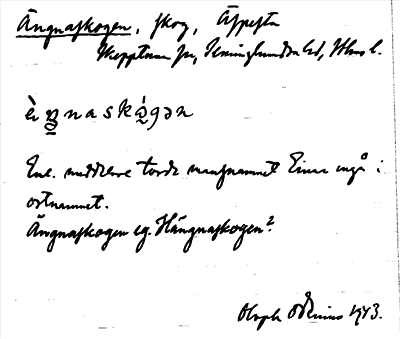 Ängnaskogen, skog, Äspesta
Skepptuna sn, Seminghundra hd, Uppl.
Enl. meddelare torde mansnamnet Einar ingå i
ortnamnet.
Ängnaskogen eg. Hängnaskogen?
Oloph Odenius 1943.